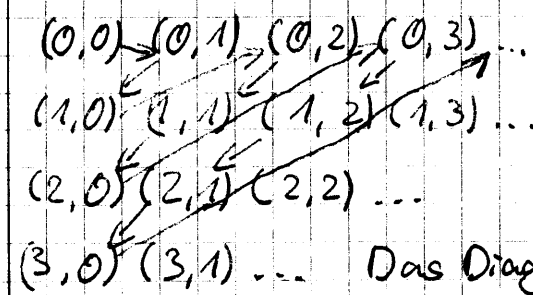 (0,0) (0,1) (0,2) (0,3) ...
(1,0) (1,1) (1,2) (1,3) ...
(2,0) (2,1) (2,2) ...
(3,0) (3,1) ... Das Diag